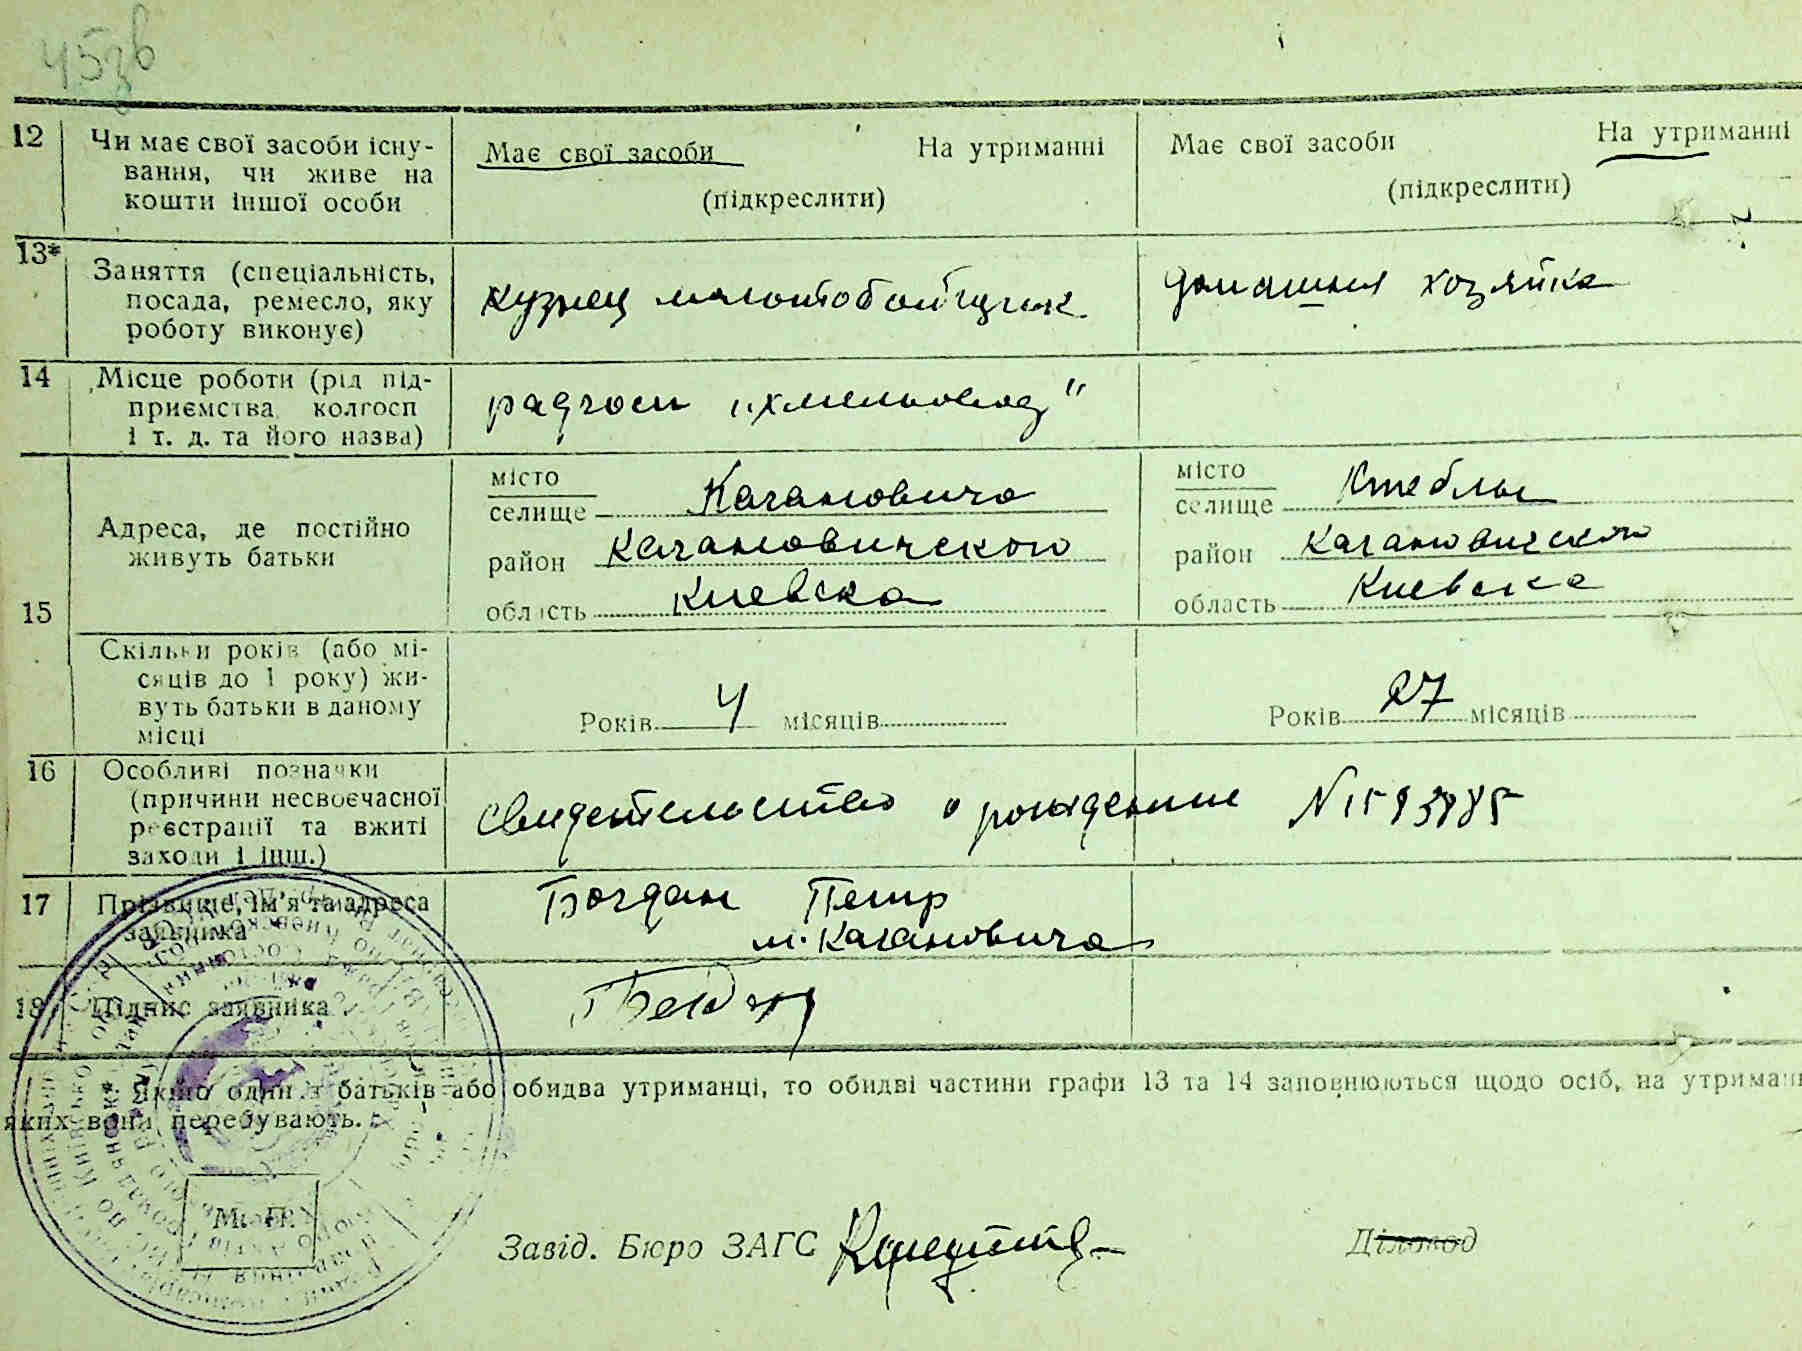 12 Чи має свої засоби існу-
вання, чи живе на
кошти іншої особи
Має свої засоби На утриманні
(підкреслити)
Має свої засоби На утриманні
(підкреслити)
13* Заняття (спеціальність,
посада, ремесло, яку
роботу виконує)
кузнец молотобойщик
домашняя хозяйка
14 Місце роботи (рід під-
приємства, колгосп
і т. д. та його назва)
радгосп „хмельовод"
15 Адреса, де постійно
живуть батьки
місто
селище Кагановича
район Кагановичского
область Киевска
місто
селище Стеблы
район Кагановичского
область Киевска
Скільки років (або мі-
сяців до 1 року) жи-
вуть батьки в даному
місці
Років 4 місяців
Років 27 місяців
16 Особливі позначки
(причини несвоєчасної
реєстрації та вжиті
заходи і інш.)
свидетельство о рождении №
17 Прізвище, ім'я та адреса
заявника
Богдан Петр
м. Кагановича
18 Підпис заявника
* Якщо один з батьків або обидва утриманці, то обидві частини графи 13 та 14 заповнюються щодо осіб, на утриман
яких вони перебувають.
М. П.
Завід. Бюро ЗАГС
Діловод